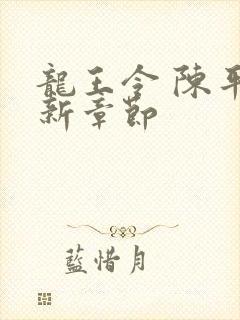 龍王令 陳平
新章節
藍惜月